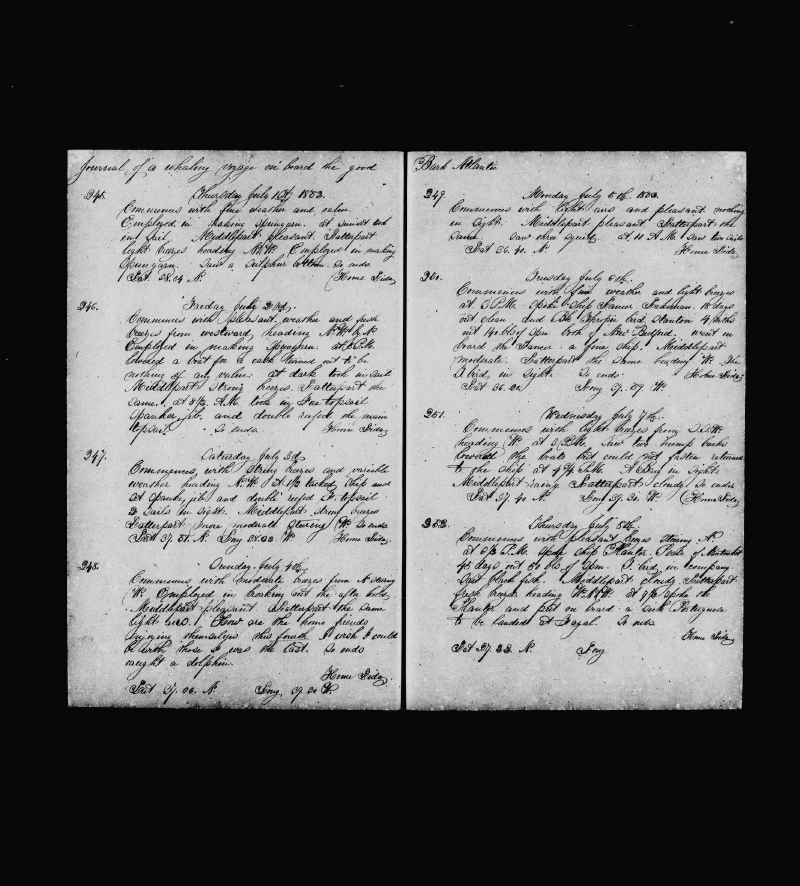 Journal of a whaling voyage on board the good
245. Thursday July 1st 1852.
Commences with fine weather and calm
Employed in making spunyarn. at sunset took
in sail. Middlepart pleasant. Latterpart
light breezes heading N.W. Employed in making
spunyarn. Saw a sulphur bottom. So ends
Lat. 38.04 N. Home Side
246. Friday July 2nd.
Commences with pleasant weather and fresh
breezes from westward, heading N.W. by N.
Employed in making spunyarn. at P.M.
lowered a boat for a cask turned out to be
nothing of any value. at dark took in sail
Middlepart strong breezes. Latterpart the
same. at A.M. took in fore topsail
spanker, jib, and double reefed the main
topsail. So ends. Home Side
247. Saturday July 3d.
Commences with strong breezes and variable
weather heading N.W. at tacked ship and
set spanker, jib and double reefed topsail
2 sails in sight. Middlepart strong breezes
Latterpart more moderate steering W. So ends
Lat 37. 51. N. Long 38.22 W Home Side
248. Sunday July 4th.
Commences with moderate breezes from N steering
W. Employed in breaking out the after hold,
Middlepart pleasant. Latterpart the same
light airs. How are the home friends
enjoying themselves this fourth I wish I could
be with those I was the last. So ends
caught a dolphin.
Home Side.
Lat 37. 06. N. Long. 39. 30 W.
Bark Atlantic
249. Monday July 5th 1852.
Commences with light airs and pleasant. nothing
in sight. Middlepart pleasant. Latterpart the
same. saw three at 11 A.M. saw two sails
Lat 36. 40. N. Home Side
250. Tuesday July 6th.
Commences with fine weather and light breezes
at 3 P.M. spoke ship 18 days
out clean and Stanton 14 months
out 140 bbls of spm both of New Bedford. went on
board the a fine ship. Middlepart
moderate. Latterpart the same heading W. the
brd. in sight. So ends. Home Side
Lat 36. 20. Long 39. 29 W.
251. Wednesday July 7th.
Commences with light breezes from S.S.W.
heading W. at 3 P.M. saw two hump backs
lowered the boats but could not fasten returned
to the ship at P.M. A Brig in sight
Middlepart Latterpart cloudy So ends
Lat 37. 40 N. Long 39. 30. W. Home Side
252. Thursday 8th.
Commences with pleasant breezes steering N.
at P.M. spoke ship Planter of Nantucket
45 days out 50 bbls of Spm. in company
saw black fish. Middlepart cloudy. Latterpart
fresh breezes heading W. at spoke the
Planter and put on board a sick Portuguese
to be landed at Fayal. So ends
Home Side
Lat 37 33 N. Long